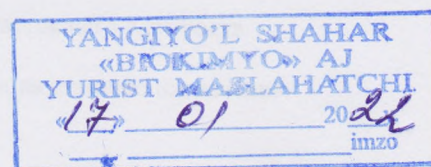 YANGIYO'L SHAHAR
«BIOKIMYO» AJ
YURIST MASLAHATCHI
«17» 01 2022
imzo